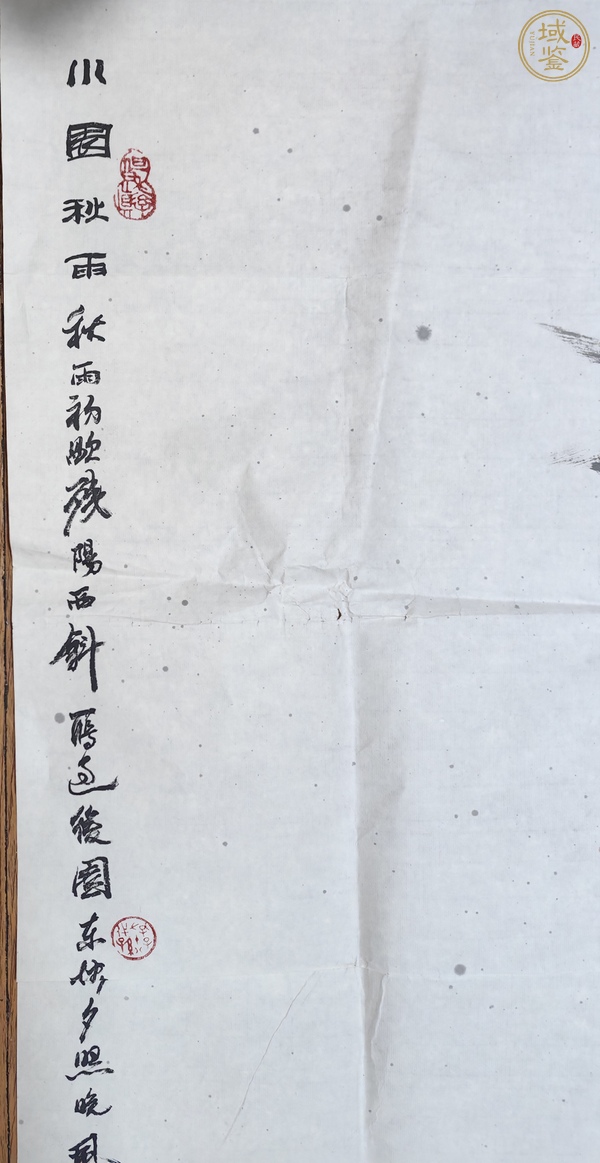 小園秋雨秋雨初歇殘陽西斜雁過後園東
夕照晚風
域鑒
YUJIAN